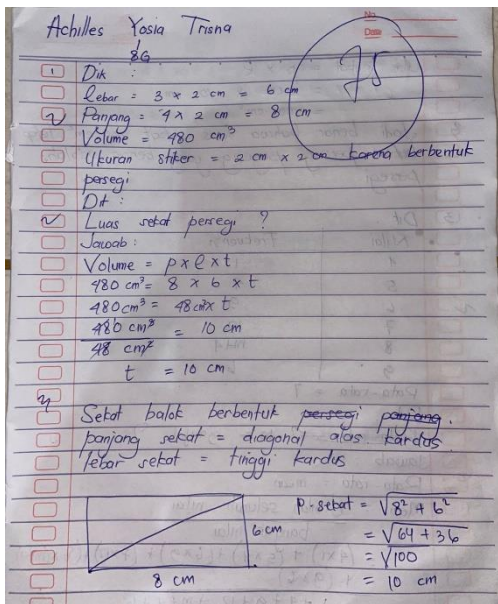 Achilles Yosia Trisna
8G
No
Date
75
1 Dik :
lebar = 3 x 2 cm = 6 cm
Panjang = 4 x 2 cm = 8 cm
Volume = 480 cm³
Ukuran stiker = 2 cm x 2 cm karena berbentuk
persegi
Dit :
Luas sekat persegi ?
Jawab :
Volume = p x l x t
480 cm³ = 8 x 6 x t
480 cm³ = 48 cm² x t
480 cm³ = 10 cm
48 cm²
t = 10 cm
Sekat balok berbentuk persegi panjang.
panjang sekat = diagonal alas kardus
lebar sekat = tinggi kardus
P. sekat = √8² + 6²
6 cm = √64 + 36
= √100
8 cm = 10 cm